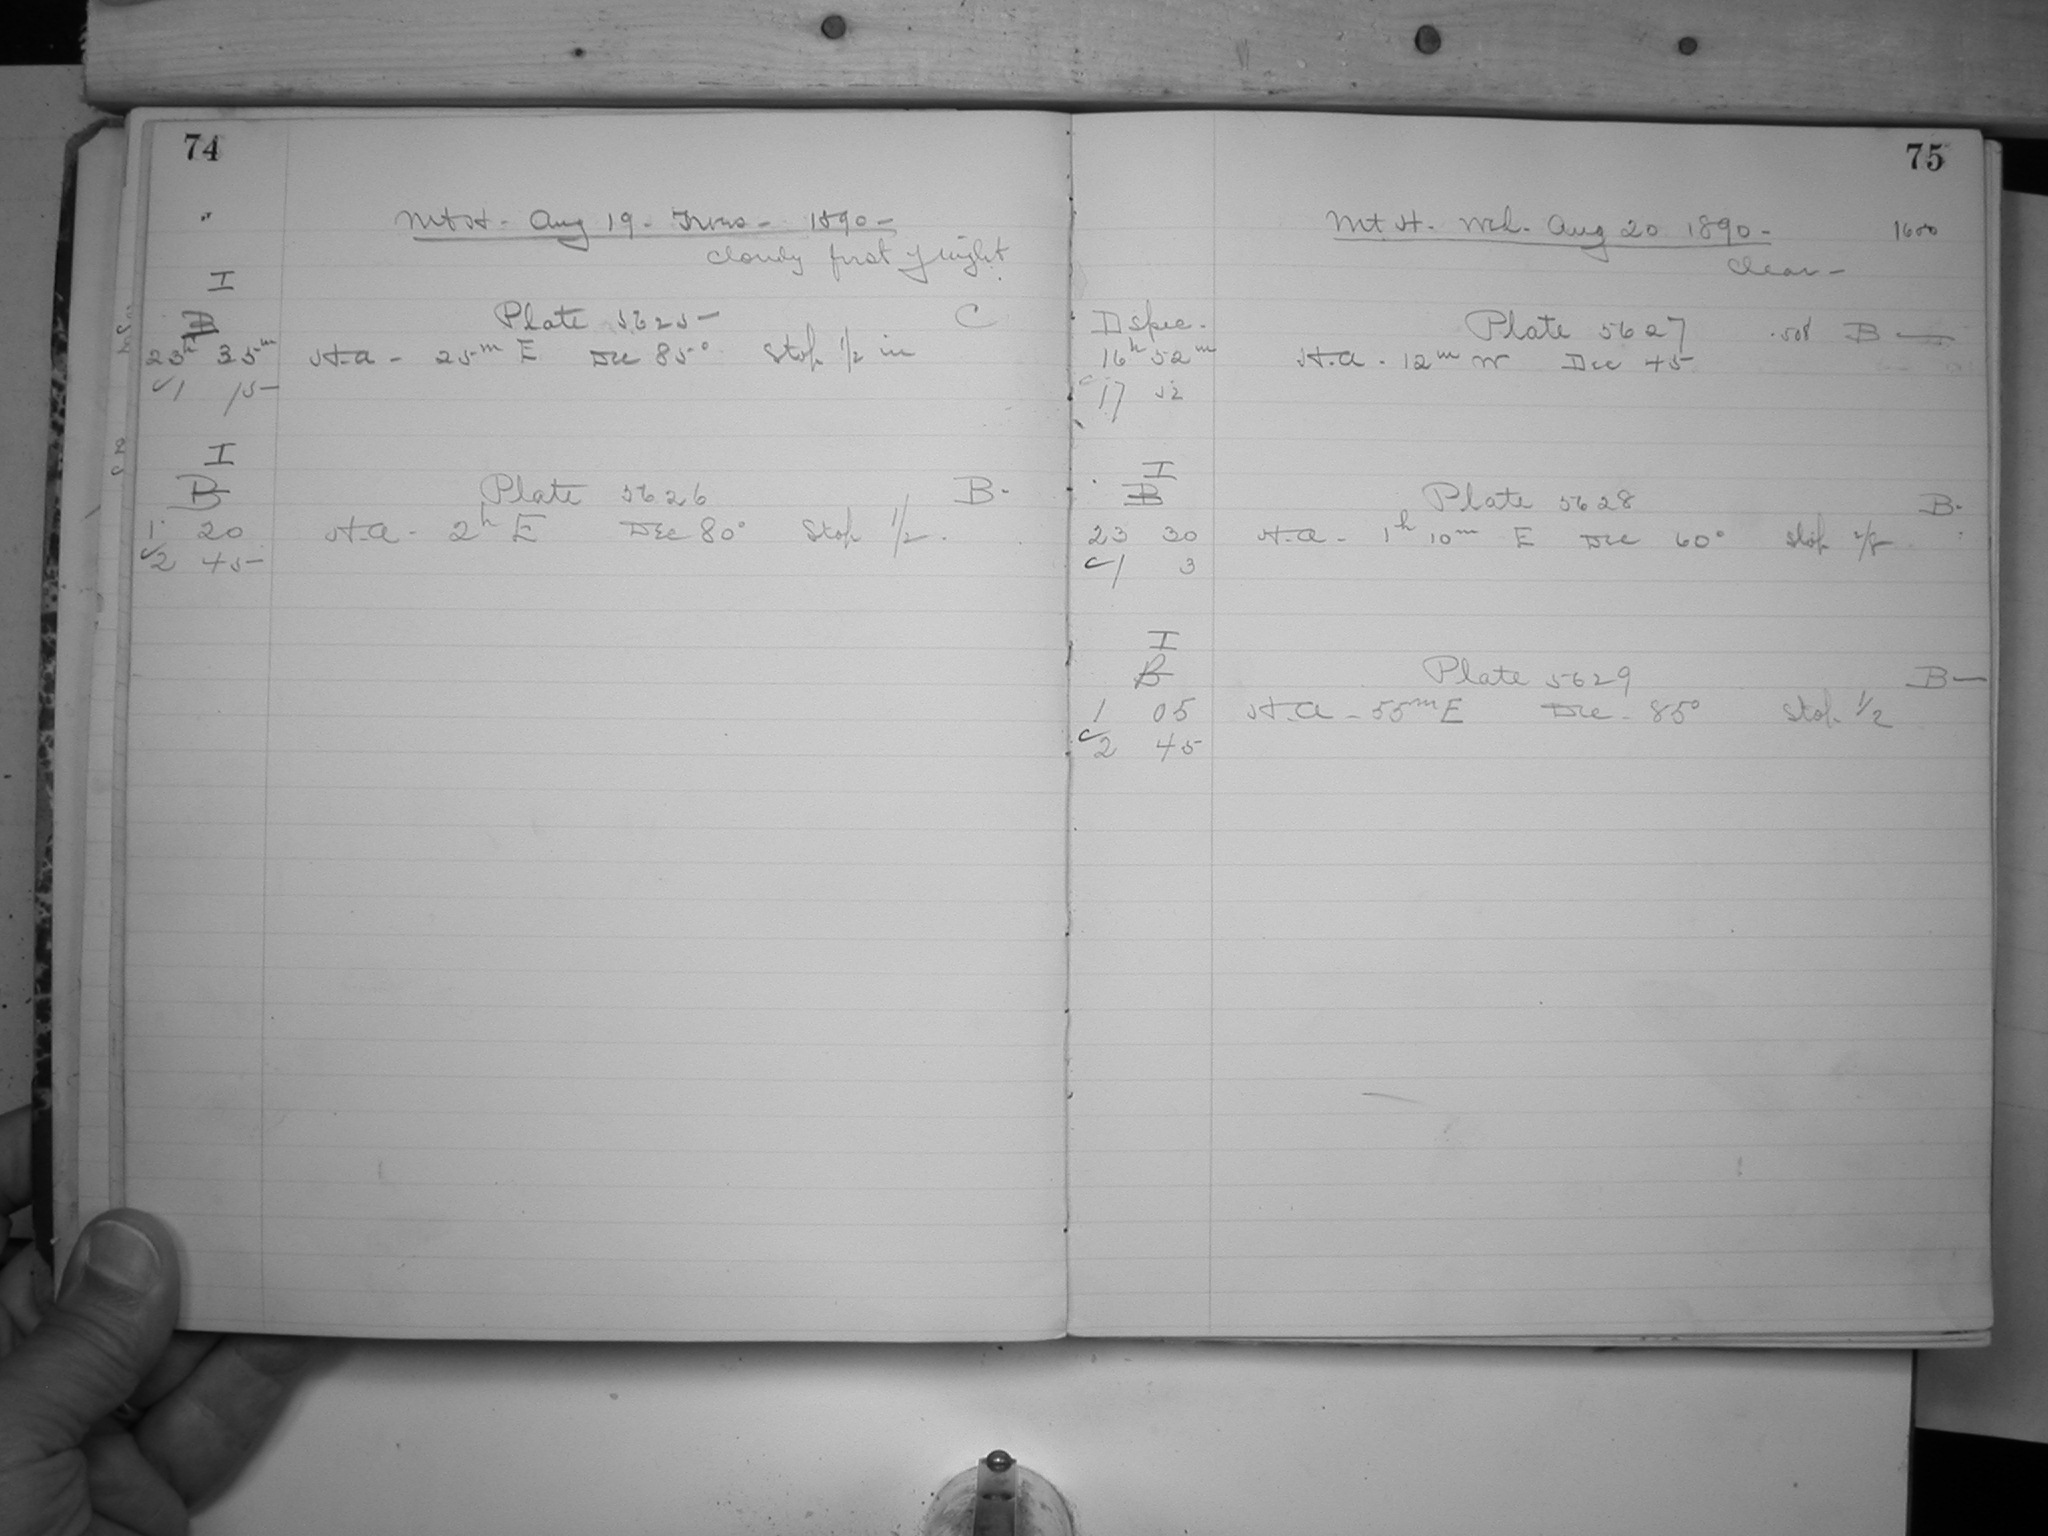 74
Mt H - Aug 19 - Tues - 1890 -
cloudy first of night
I
B
Plate 5625 - C
23h 35m H.a - 25m E Dec 85° Stop 1/2 in
1 15 -
I
B
Plate 5626 B -
1 20 H.a - 2h E Dec 80° Stop 1/2 .
2 45 -
75
Mt. H. Wed. Aug 20 1890 -
clear -
D spec. Plate 5627 B -
16h 52m H.a. 12m W Dec 45
17 52
I
B
Plate 5628 B -
23 30 H.a - 1h 10m E Dec 60° Stop
1 3
I
B
Plate 5629 B -
1 05 H.a - 55m E Dec - 85° Stop 1/2
2 45